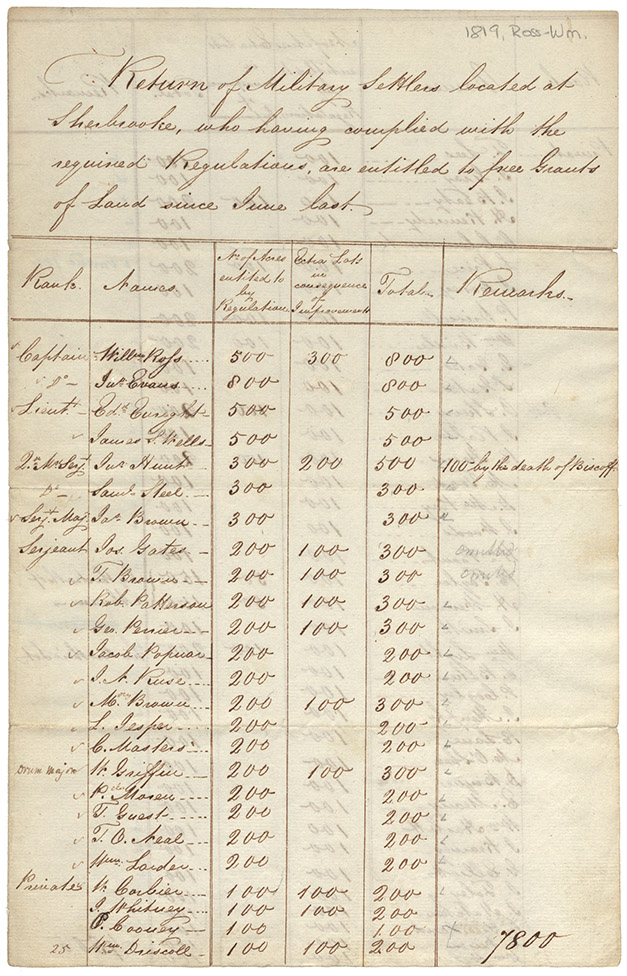 1819, Ross-Wm.
Return of Military Settlers located at
Sherbrooke, who having complied with the
required Regulations, are entitled to free Grants
of Land since June last.
Rank Names No of Acres entitled to by Regulation Extra Lots in consequence of Improvements Total Remarks
Captain Willm Ross 500 300 800 "
Do Jno Evans 800 800
Lieut. Edd Enright 500 500
James S. Wells 500 500
Qr Mr Serjt Jno Hunt 300 200 500 100 by the death of Biscoff
Do Saml Steel 300 300
Serjt Majr Jas Brown 300 300 "
Serjeant Jos. Gates 200 100 300 omitted
T. Brown 200 100 300 omitted
Rob. Patterson 200 100 300 "
Geo. Perrier 200 100 300 "
Jacob 200 200 "
J. A. Ruse 200 200 "
Brown 200 100 300 "
L. Jesper 200 200 "
C. Masters 200 200 "
Drum major W. Griffin 200 100 300 "
Moren 200 200 "
T. Guest 200 200 "
T. O. Neal 200 200 "
Wm. 200 200 "
Privates W. Corbier 100 100 200
J. Whitney 100 100 200
P. Cooney 100 100 x
25 Wm. Driscoll 100 100 200 7800